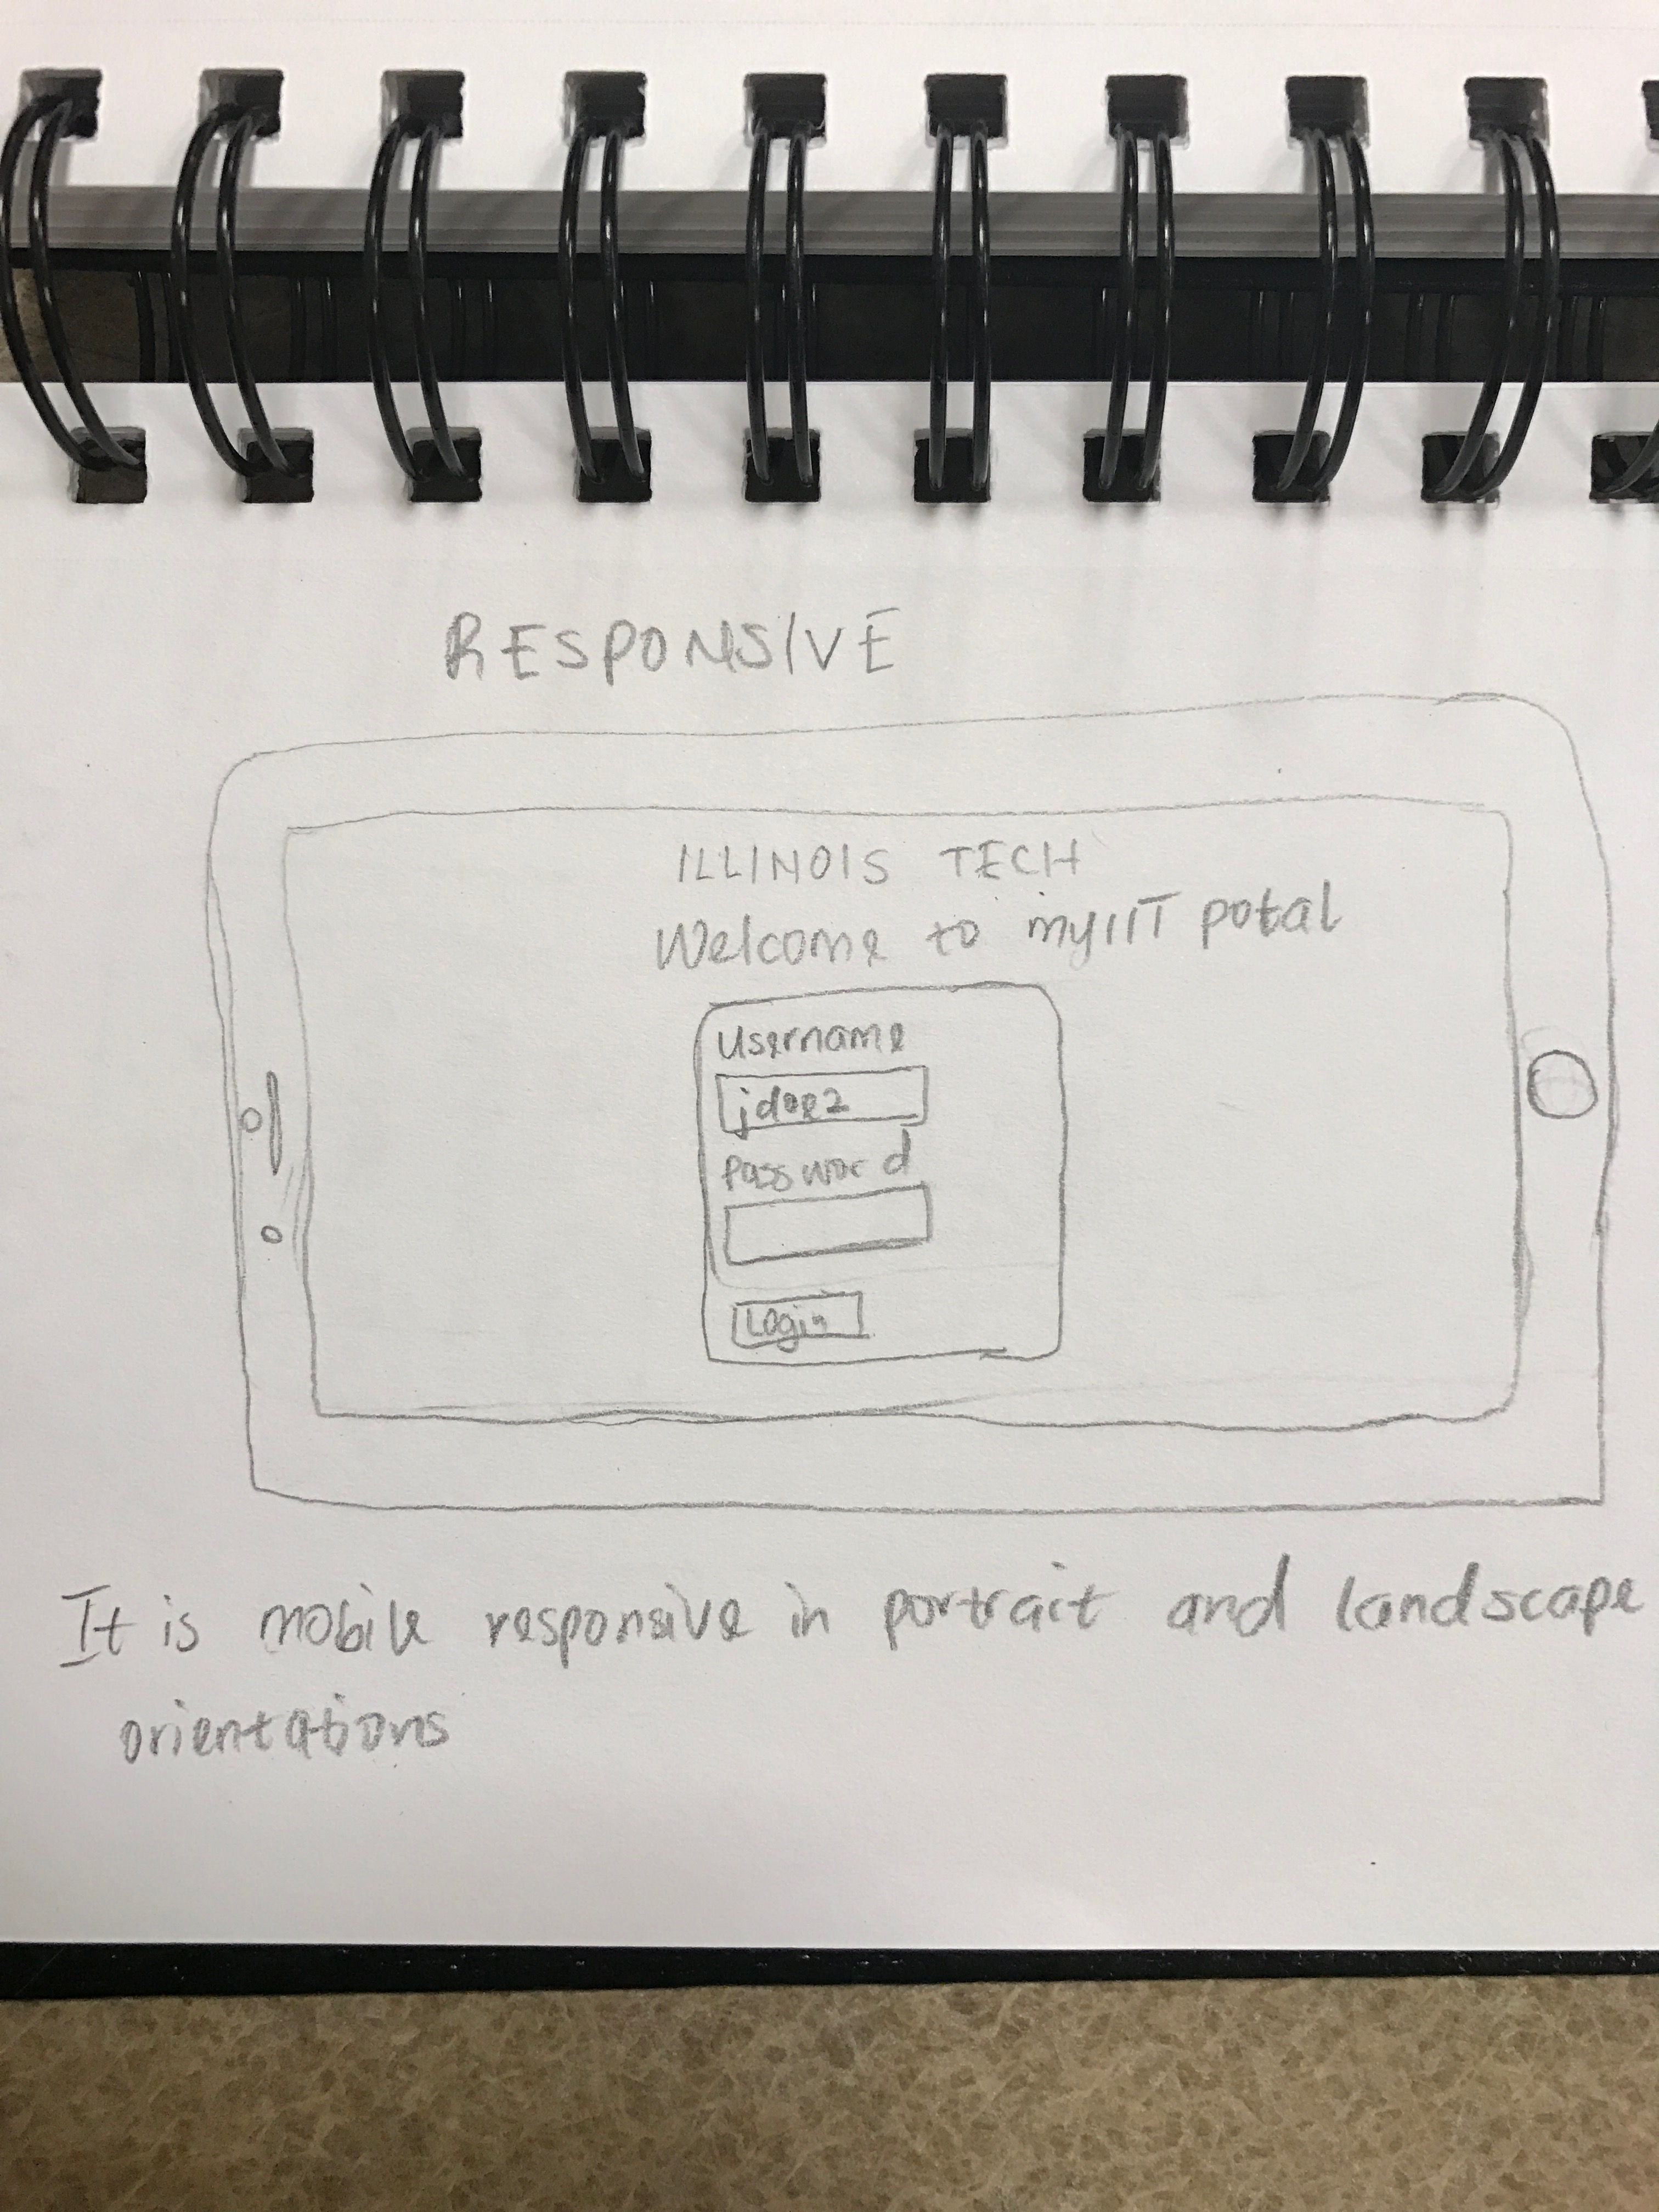 RESPONSIVE
ILLINOIS TECH
Welcome to myIIT potal
Username
jdoe2
Password
Login
It is mobile responsive in portrait and landscape
orientations